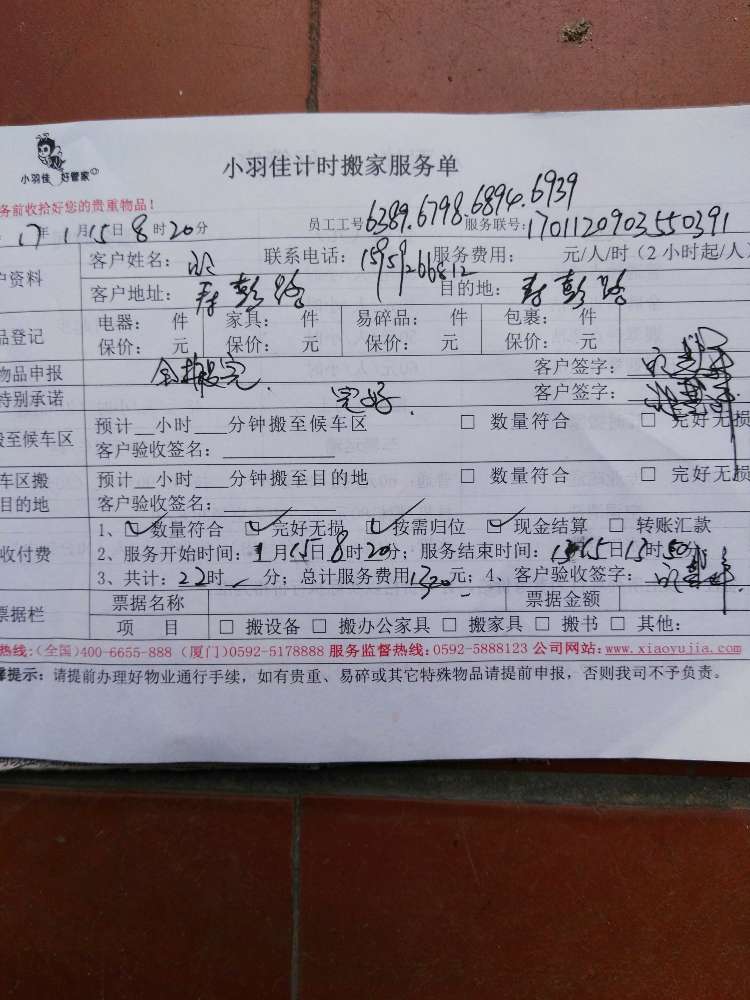 小羽佳 好管家
小羽佳计时搬家服务单
务前收拾好您的贵重物品！
17年1月15日8时20分 员工工号6389.6798.6894.6939 服务联号:1701120903550391
户资料 客户姓名： 联系电话：15959266812 服务费用： 元/人/时（2小时起/人
客户地址： 寿彭路 目的地： 寿彭路
品登记 电器： 件 家具： 件 易碎品： 件 包裹： 件
保价： 元 保价： 元 保价： 元 保价： 元
物品申报 全搬完. 客户签字：
特别承诺 完好. 客户签字：
搬至候车区 预计__小时___分钟搬至候车区 □ 数量符合 □ 完好无损
客户验收签名：
车区搬 预计__小时___分钟搬至目的地 □ 数量符合 □ 完好无损
目的地 客户验收签名：
收付费 1、☑数量符合 ☑完好无损 ☑按需归位 ☑现金结算 □ 转账汇款
2、服务开始时间：1月15日8时20分；服务结束时间：15日13时50分
3、共计：22时 分；总计服务费用1320元；4、客户验收签字：
票据栏 票据名称 票据金额
项 目 □ 搬设备 □ 搬办公家具 □ 搬家具 □ 搬书 □ 其他：
热线：(全国)400-6655-888 (厦门)0592-5178888 服务监督热线：0592-5888123 公司网站：www.xiaoyujia.com
馨提示：请提前办理好物业通行手续，如有贵重、易碎或其它特殊物品请提前申报，否则我司不予负责。